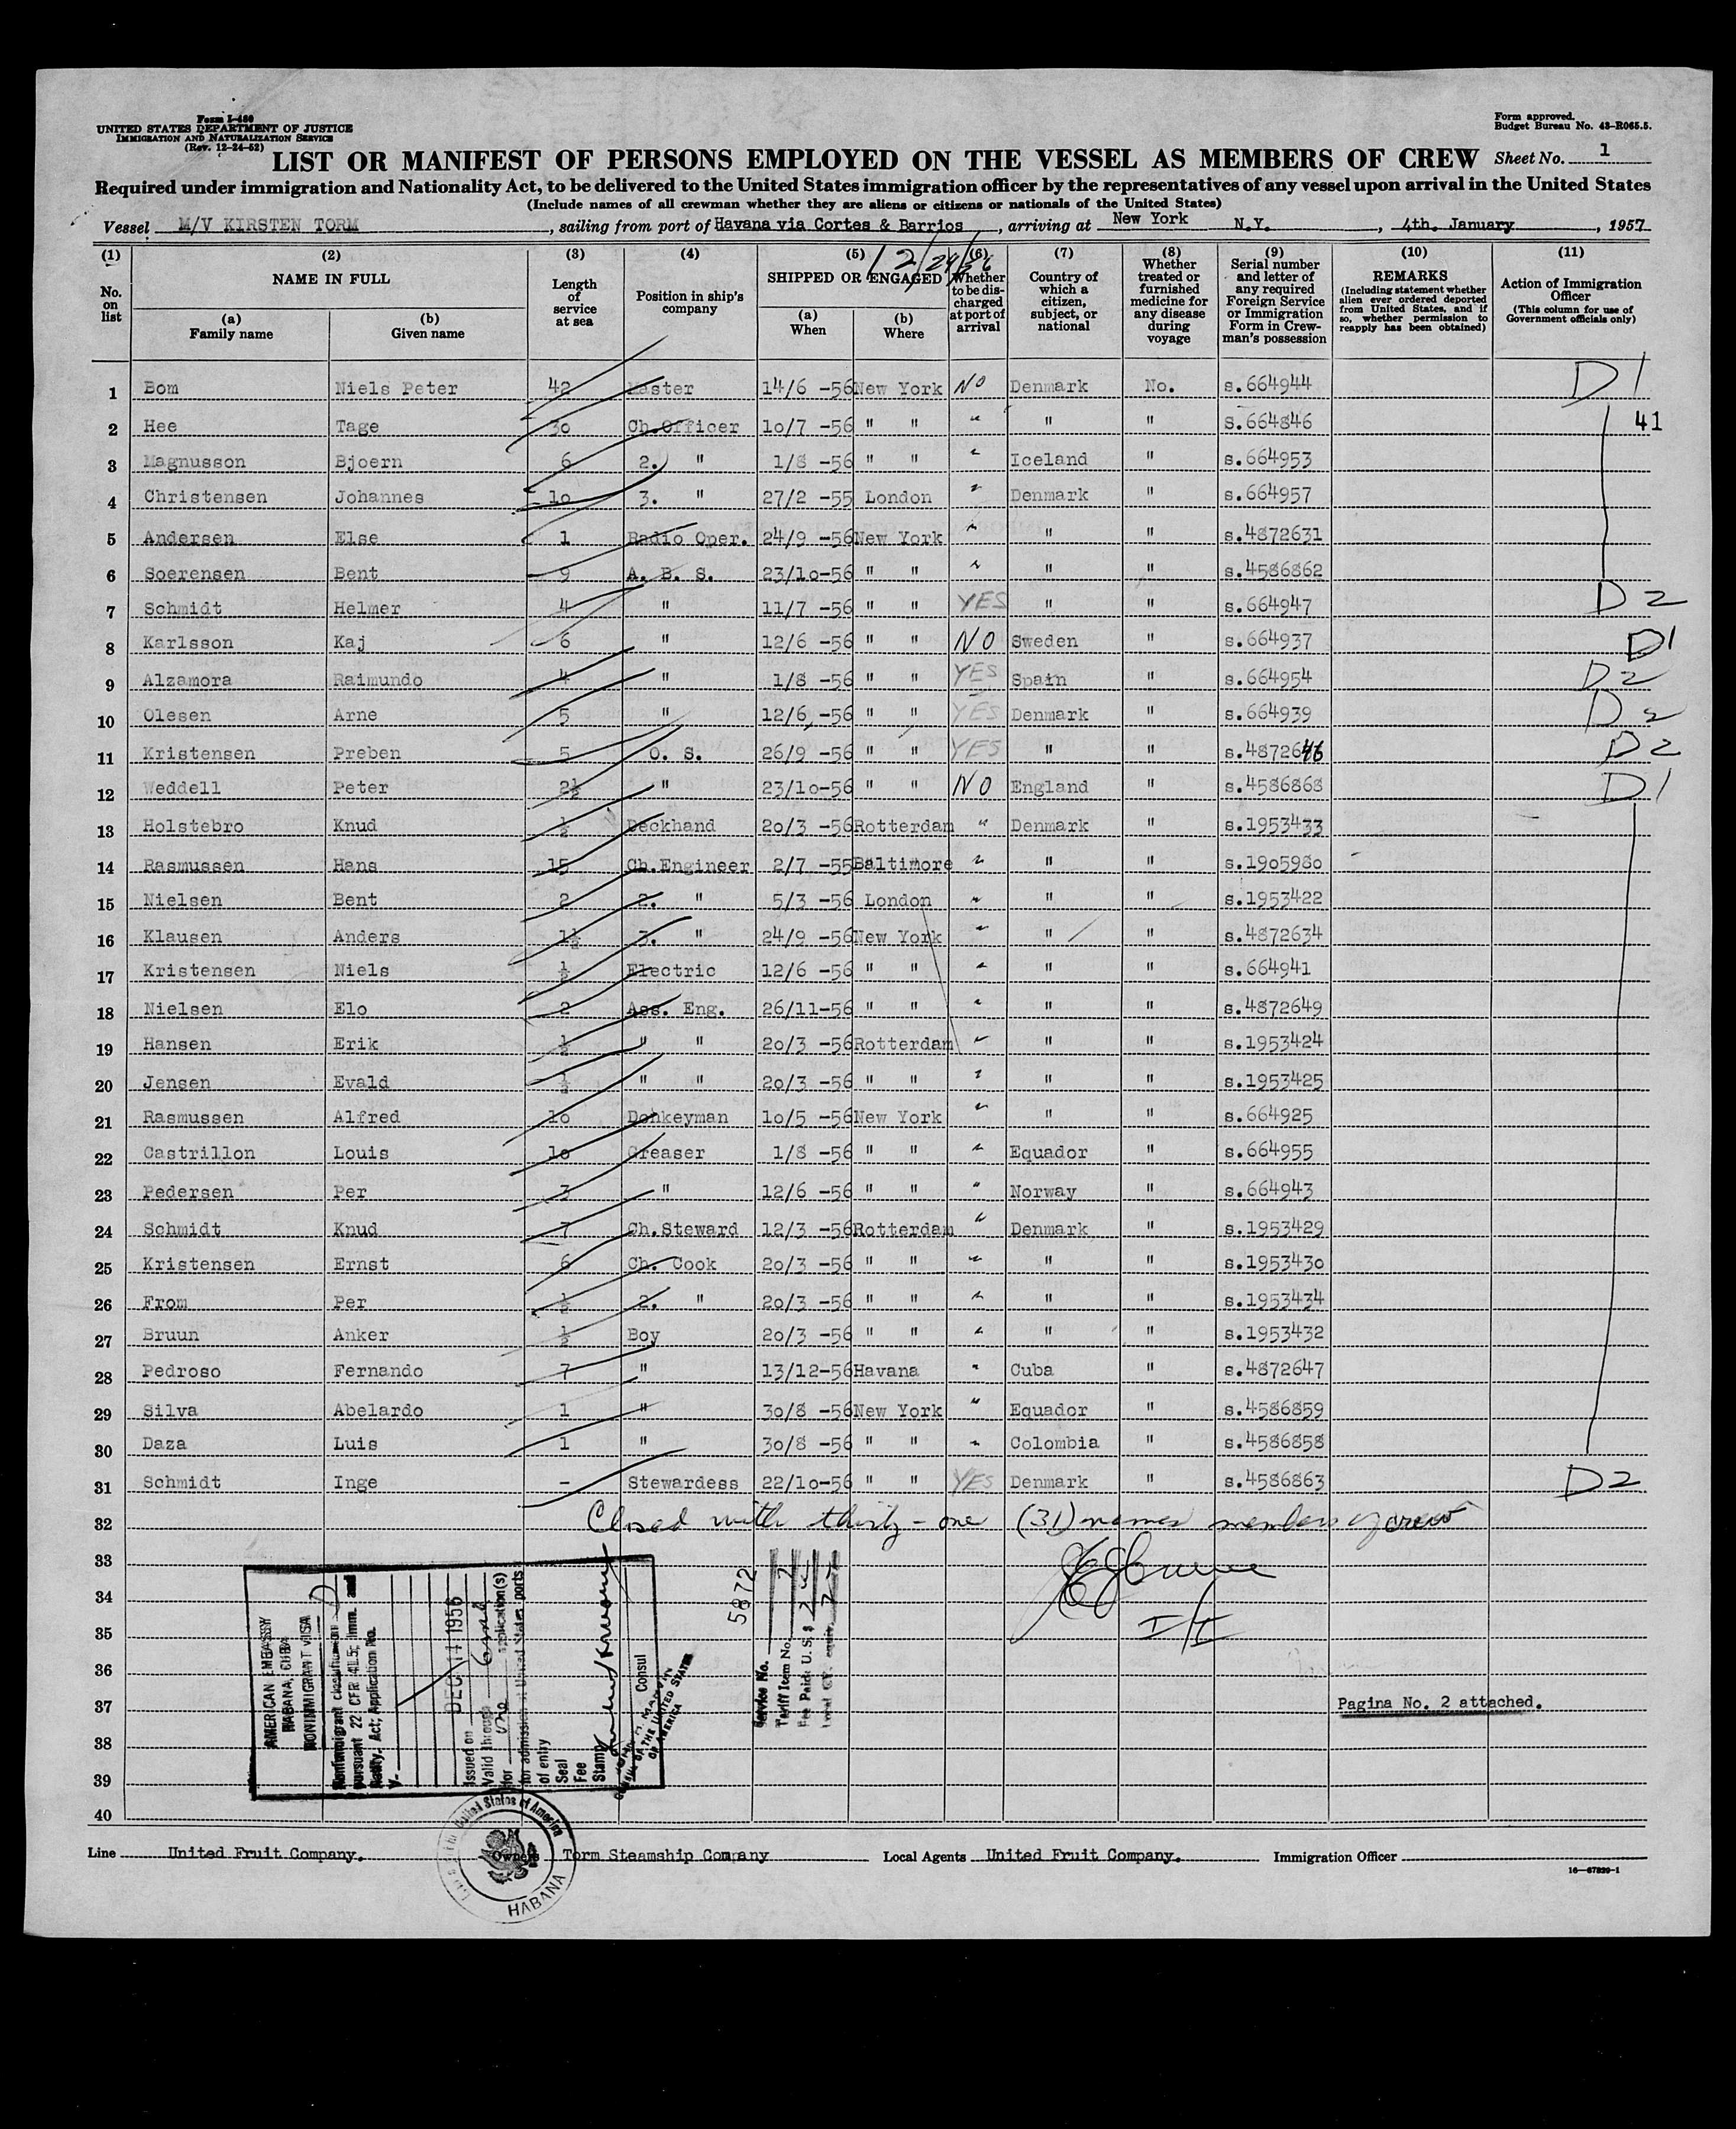 Form I-480
UNITED STATES DEPARTMENT OF JUSTICE
IMMIGRATION AND NATURALIZATION SERVICE
(Rev. 12-24-52)
Form approved.
Budget Bureau No. 43-R065.5.
LIST OR MANIFEST OF PERSONS EMPLOYED ON THE VESSEL AS MEMBERS OF CREW Sheet No. 1
Required under immigration and Nationality Act, to be delivered to the United States immigration officer by the representatives of any vessel upon arrival in the United States
(Include names of all crewman whether they are aliens or citizens or nationals of the United States)
Vessel M/V KIRSTEN TORM, sailing from port of Havana via Cortes & Barrios, arriving at New York N.Y., 4th. January, 1957
12/24/56
(1) No. on list
(2) NAME IN FULL
(a) Family name
(b) Given name
(3) Length of service at sea
(4) Position in ship's company
(5) SHIPPED OR ENGAGED
(a) When
(b) Where
(6) Whether to be discharged at port of arrival
(7) Country of which a citizen, subject, or national
(8) Whether treated or furnished medicine for any disease during voyage
(9) Serial number and letter of any required Foreign Service or Immigration Form in Crewman's possession
(10) REMARKS (Including statement whether alien ever ordered deported from United States, and if so, whether permission to reapply has been obtained)
(11) Action of Immigration Officer (This column for use of Government officials only)
1 Bom Niels Peter 42 Master 14/6 -56 New York NO Denmark No. s.664944 D1
2 Hee Tage 30 Ch.Officer 10/7 -56 " " " " " s.664846 41
3 Magnusson Bjoern 6 2. " 1/8 -56 " " " Iceland " s.664953
4 Christensen Johannes 10 3. " 27/2 -55 London " Denmark " s.664957
5 Andersen Else 1 Radio Oper. 24/9 -56 New York " " " s.4872631
6 Soerensen Bent 9 A. B. S. 23/10-56 " " " " " s.4586862
7 Schmidt Helmer 4 " 11/7 -56 " " YES " " s.664947 D2
8 Karlsson Kaj 6 " 12/6 -56 " " NO Sweden " s.664937 D1
9 Alzamora Raimundo 4 " 1/8 -56 " " YES Spain " s.664954 D2
10 Olesen Arne 5 " 12/6 -56 " " YES Denmark " s.664939 D2
11 Kristensen Preben 5 O. S. 26/9 -56 " " YES " " s.4872646 D2
12 Weddell Peter 2½ " 23/10-56 " " NO England " s.4586868 D1
13 Holstebro Knud ½ Deckhand 20/3 -56 Rotterdam " Denmark " s.1953433
14 Rasmussen Hans 15 Ch.Engineer 2/7 -55 Baltimore " " " s.1905980
15 Nielsen Bent 2 2. " 5/3 -56 London " " " s.1953422
16 Klausen Anders 1½ 3. " 24/9 -56 New York " " " s.4872634
17 Kristensen Niels ½ Electric 12/6 -56 " " " " " s.664941
18 Nielsen Elo 2 Ass. Eng. 26/11-56 " " " " " s.4872649
19 Hansen Erik ½ " " 20/3 -56 Rotterdam " " " s.1953424
20 Jensen Evald ½ " " 20/3 -56 " " " " " s.1953425
21 Rasmussen Alfred 10 Donkeyman 10/5 -56 New York " " " s.664925
22 Castrillon Louis 10 Greaser 1/8 -56 " " " Equador " s.664955
23 Pedersen Per 3 " 12/6 -56 " " " Norway " s.664943
24 Schmidt Knud 7 Ch.Steward 12/3 -56 Rotterdam " Denmark " s.1953429
25 Kristensen Ernst 6 Ch. Cook 20/3 -56 " " " " " s.1953430
26 From Per ½ 2. " 20/3 -56 " " " " " s.1953434
27 Bruun Anker ½ Boy 20/3 -56 " " " " " s.1953432
28 Pedroso Fernando 7 " 13/12-56 Havana " Cuba " s.4872647
29 Silva Abelardo 1 " 30/8 -56 New York " Equador " s.4586859
30 Daza Luis 1 " 30/8 -56 " " " Colombia " s.4586858
31 Schmidt Inge - Stewardess 22/10-56 " " YES Denmark " s.4586863 D2
32 Closed with thirty-one (31) names members of crew
33
34
35
36
37 Pagina No. 2 attached.
38
39
40
AMERICAN EMBASSY
HABANA, CUBA
NONIMMIGRANT VISA
Nonimmigrant classification D
pursuant 22 CFR 41.5; Imm. and
Natlty. Act; Application No.
V-
Issued on DEC 1956
Valid through
for application(s)
for admission at United States ports
of entry
Seal
Fee
Stamp
Consul
CONSUL OF THE UNITED STATES
OF AMERICA
5872
Service No.
Tariff Item No. 7
Fee Paid: U.S. $
HABANA
Line United Fruit Company. Owners Torm Steamship Company Local Agents United Fruit Company. Immigration Officer
16—67829-1